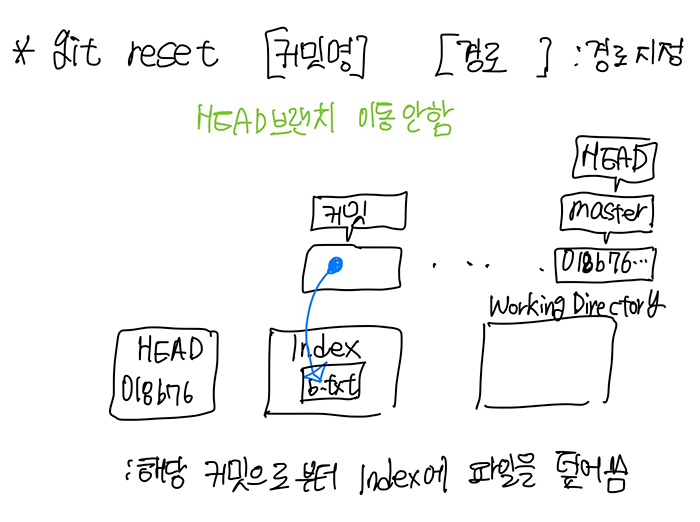 * git reset [커밋명] [경로] : 경로지정
HEAD브랜치 이동안함
HEAD
커밋 master
018b76...
Working Directory
HEAD Index
018b76 b.txt
:해당 커밋으로 부터 Index에 파일을 덮어씀